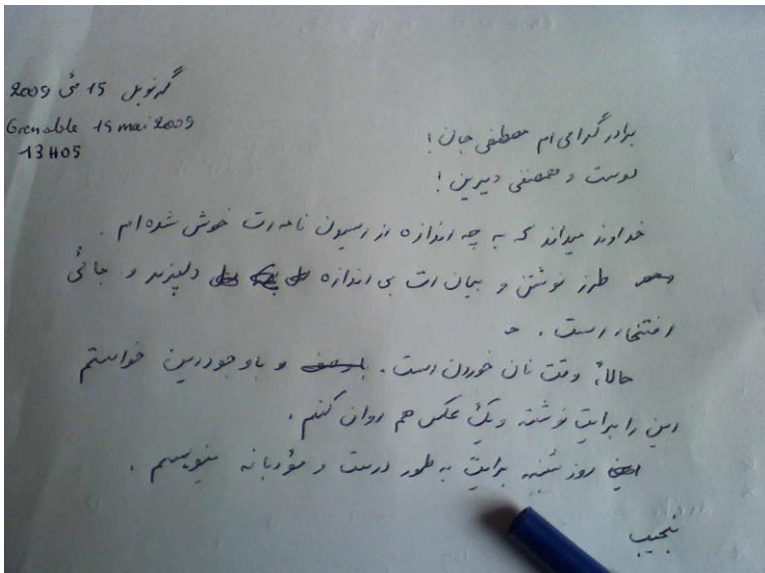 گرنوبل 15 مئ 2009
Grenoble 15 mai 2009
13H05
برادر گرامی ام مصطفی جان!
دوست و همصنفی دیرین!
خداوند میداند که به چه اندازه از رسیدن نامه ات خوش شده ام.
طرز نوشتن و بیان ات بی اندازه دلپذیر و جائی
افتخار است.
حالا، وقت نان خوردن است. و باوجود این خواستم
این را برایت نوشته و یک عکس هم روان کنم.
روز شنبه برایت به طور درست و مؤدبانه مینویسم.
نجیب